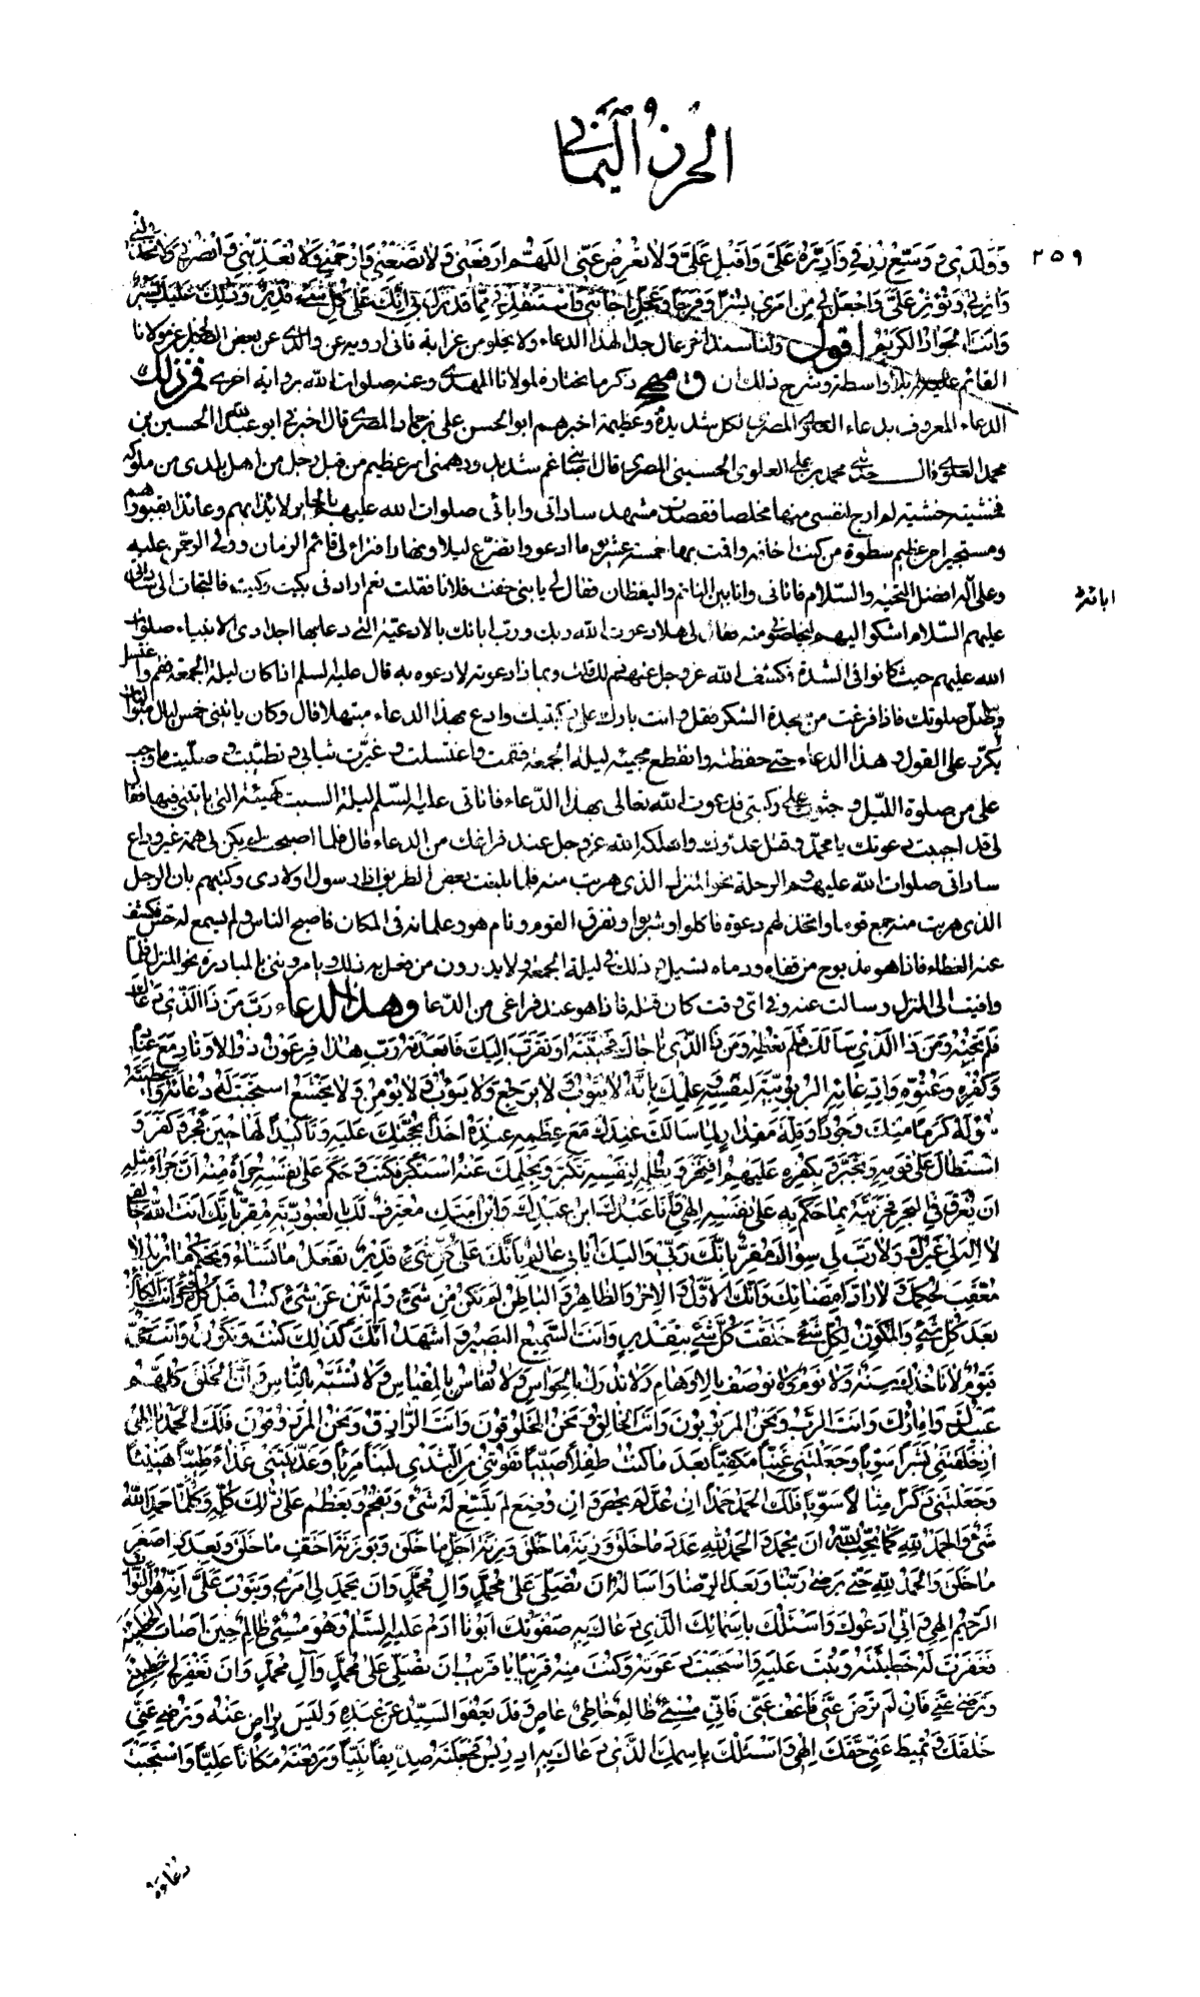 الحرز اليماني
٢٥٩
وولدي ووسع رزقي وادره علي واقبل علي ولا تعرض عني اللهم ارفعني ولا تضعني وارحمني ولا تعذبني وانصرني ولا تخذلني
واثرني ولا تؤثر علي واجعل لي من امري يسرا وفرجا وعجل اجابتي واستنقذني مما قد نزل بي انك على كل شيء قدير وذلك عليك يسير
وانت الجواد الكريم اقول ولنا سند اخر عال جدا لهذا الدعاء ولا يخلو من غرابة فاني ارويه عن والدي عن بعض عن مولانا
القائم عليه السلام بلا واسطة وشرح ذلك ان ق مهج ذكر ما نختاره لمولانا المهدي وعنه صلوات الله برواية اخرى فمن ذلك
الدعاء المعروف بدعاء العلوي المصري لكل شديدة وعظيمة اخبرهم ابو الحسن علي بن حماد المصري قال اخبرني ابو عبد الله الحسين بن
محمد العلوي قال حدثني محمد بن علي العلوي الحسيني المصري قال اصابني غم شديد ودهمني امر عظيم من قبل رجل من اهل بلدي من ملوكه
فخشيته خشية لم ارج لنفسي منها مخلصا فقصدت مشهد ساداتي وابائي صلوات الله عليهم بالحاير لائذا بهم وعائذا بقبورهم
ومستجيرا من عظيم سطوة من كنت اخافه واقمت بها خمسة عشر يوما ادعو واتضرع ليلا ونهارا فتراءى لي قائم الزمان وولي الرحمن عليه
وعلى آله افضل التحية والسلام فاتاني وانا بين النائم واليقظان فقال لي يا بني خفت فلانا فقلت نعم ارادني بكيت وكيت فالتجأت الى ساداتي
عليهم السلام اشكو اليهم ليخلصوني منه فقال لي هلا دعوت الله ربك ورب ابائك بالادعية التي دعا بها اجدادي الانبياء صلوات
ابائه
الله عليهم حيث كانوا في الشدة فكشف الله عز وجل عنهم ذلك قلت وبما ذا دعوه لادعوه به قال عليه السلم اذا كان ليلة الجمعة فقم واغتسل
وصل صلوتك فاذا فرغت من سجدة الشكر فقل وانت بارك على ركبتيك وادع بهذا الدعاء مبتهلا قال وكان ياتيني خمس ليال متواليات
يكرر علي القول وهذا الدعاء حتى حفظته وانقطع مجيئه ليلة الجمعة فقمت واغتسلت وغيرت ثيابي وتطيبت وصليت ما وجب
علي من صلوة الليل وجثوت على ركبتي فدعوت الله تعالى بهذا الدعاء فاتاني عليه السلم ليلة السبت كهيئته التي ياتيني فيها فقال
لي قد اجيبت دعوتك يا محمد وقتل عدوك واهلكه الله عز وجل عند فراغك من الدعاء قال فلما اصبحت لم يكن لي همة غير وداع
ساداتي صلوات الله عليهم والرحلة نحو المنزل الذي هربت منه فلما بلغت بعض الطريق اذا رسول اولادي وكتبهم بان الرجل
الذي هربت منه جمع قوما واتخذ لهم دعوة فاكلوا وشربوا وتفرق القوم ونام هو وغلمانه في المكان فاصبح الناس ولم يسمع له حس فكشف
عنه الغطاء فاذا هو مذبوح من قفاه ودماه تسيل وذلك في ليلة الجمعة ولا يدرون من فعل به ذلك ويامرونني بالمبادرة نحو المنزل فلما
وافيت الى المنزل وسالت عنه وفي اي وقت كان قتله فاذا هو عند فراغي من الدعا وهذا الدعاء رب من ذا الذي دعاك
فلم تجبه ومن ذا الذي سألك فلم تعطه ومن ذا الذي ناجاك فخيبته او تقرب اليك فابعدته رب هذا فرعون ذو الاوتاد مع عناده
وكفره وعتوه وادعائه الربوبية لنفسه وعلمك بانه لا يتوب ولا يرجع ولا يؤوب ولا يؤمن ولا يخشع استجبت له دعائه واعطيته
سؤله كرما منك وجودا وقلة مقدار لما سألك عندك مع عظمه عنده اخذا بحجتك عليه وتأكيدا لها حين فجر وكفر و
استطال على قومه وتجبر وبكفره عليهم افتخر وبظلمه لنفسه تكبر وبحلمك عنه استكبر فكتب وحكم على نفسه جرأة منه ان جزاء مثله
ان يغرق في البحر فجزيته بما حكم به على نفسه الهي وانا عبدك ابن عبدك وابن امتك معترف لك بالعبودية مقر بانك انت الله خالقي
لا اله لي غيرك ولا رب لي سواك مقر بانك ربي واليك ايابي عالم بانك على كل شيء قدير تفعل ما تشاء وتحكم ما تريد لا
معقب لحكمك ولا راد لقضائك وانك الاول والاخر والظاهر والباطن لم تكن من شيء ولم تبن عن شيء كنت قبل كل شيء وانت الكائن
بعد كل شيء والمكون لكل شيء خلقت كل شيء بتقدير وانت السميع البصير واشهد انك كذلك كنت وتكون وانت حي
قيوم لا تاخذك سنة ولا نوم ولا توصف بالاوهام ولا تدرك بالحواس ولا تقاس بالمقياس ولا تشبه بالناس وان الخلق كلهم
عبيدك واماؤك وانت الرب ونحن المربوبون وانت الخالق ونحن المخلوقون وانت الرازق ونحن المرزوقون فلك الحمد يا الهي
اذ خلقتني بشرا سويا وجعلتني غنيا مكفيا بعد ما كنت طفلا صبيا تقوتني من الثدي لبنا مريا وغذيتني غذاء طيبا هنيئا
وجعلتني ذكرا مثالا سويا فلك الحمد حمدا ان عد لم يحص وان وضع لم يتسع له شيء ويفخم ويعظم على ذلك كله وكلما حمد الله
شيء والحمد لله كما يحب الله ان يحمد والحمد لله عدد ما خلق وزنة ما خلق وزنة اجل ما خلق وبوزنة اخف ما خلق وبعدد اصغر
ما خلق والحمد لله حتى يرضى ربنا وبعد الرضا واساله ان يصلي على محمد وال محمد وان يحمد لي امري ويتوب علي انه هو التواب
الرحيم الهي واني ادعوك واسئلك باسمك الذي دعاك به صفوتك ابونا ادم عليه السلم وهو مسيء ظالم حين اصاب الخطيئة
فغفرت له خطيئته وتبت عليه واستجبت دعوته وكنت منه قريبا يا قريب ان تصلي على محمد وآل محمد وان تغفر لي خطيئتي
وترضى عني فان لم ترض عني فاعف عني فاني مسيء ظالم خاطئ عاص وقد يعفو السيد عن عبده وليس براض عنه وترضي عني
خلقك وتميط عني حقك الهي واسئلك باسمك الذي دعاك به ادريس فجعلته صديقا نبيا ورفعته مكانا عليا واستجبت
دعاءه